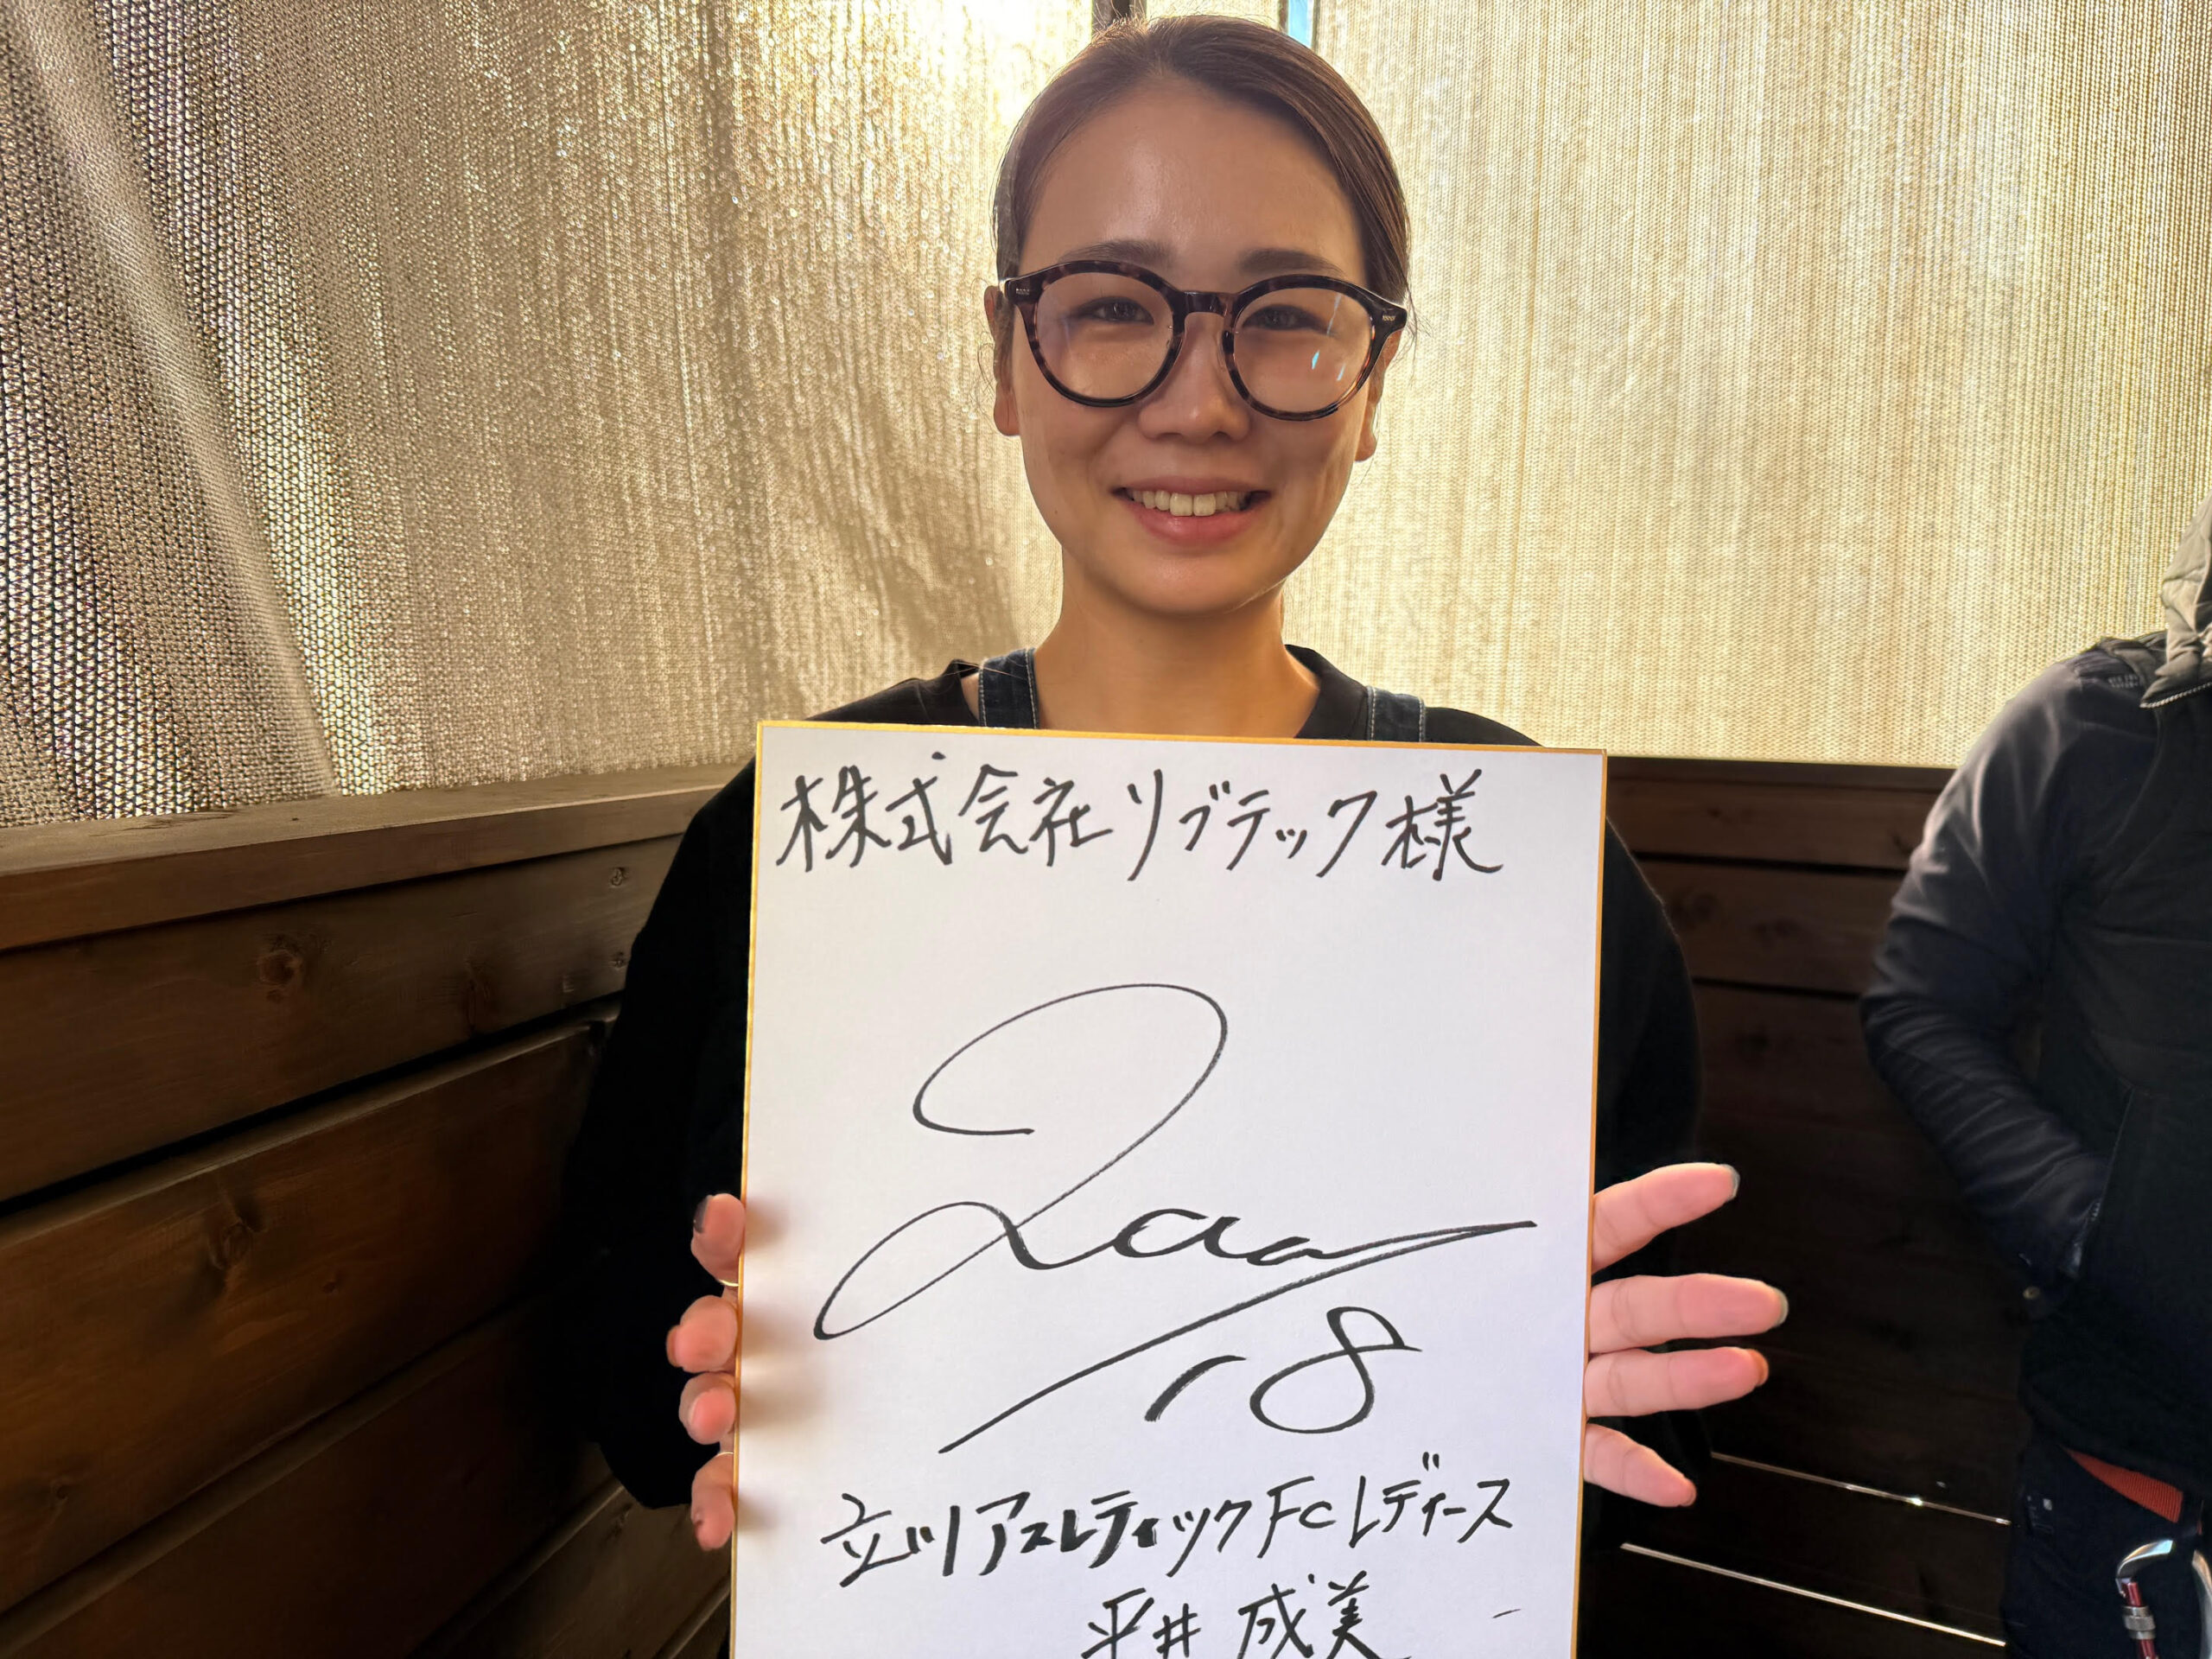 株式会社リブテック様
18
立川アスレティックFCレディース
平井 成美